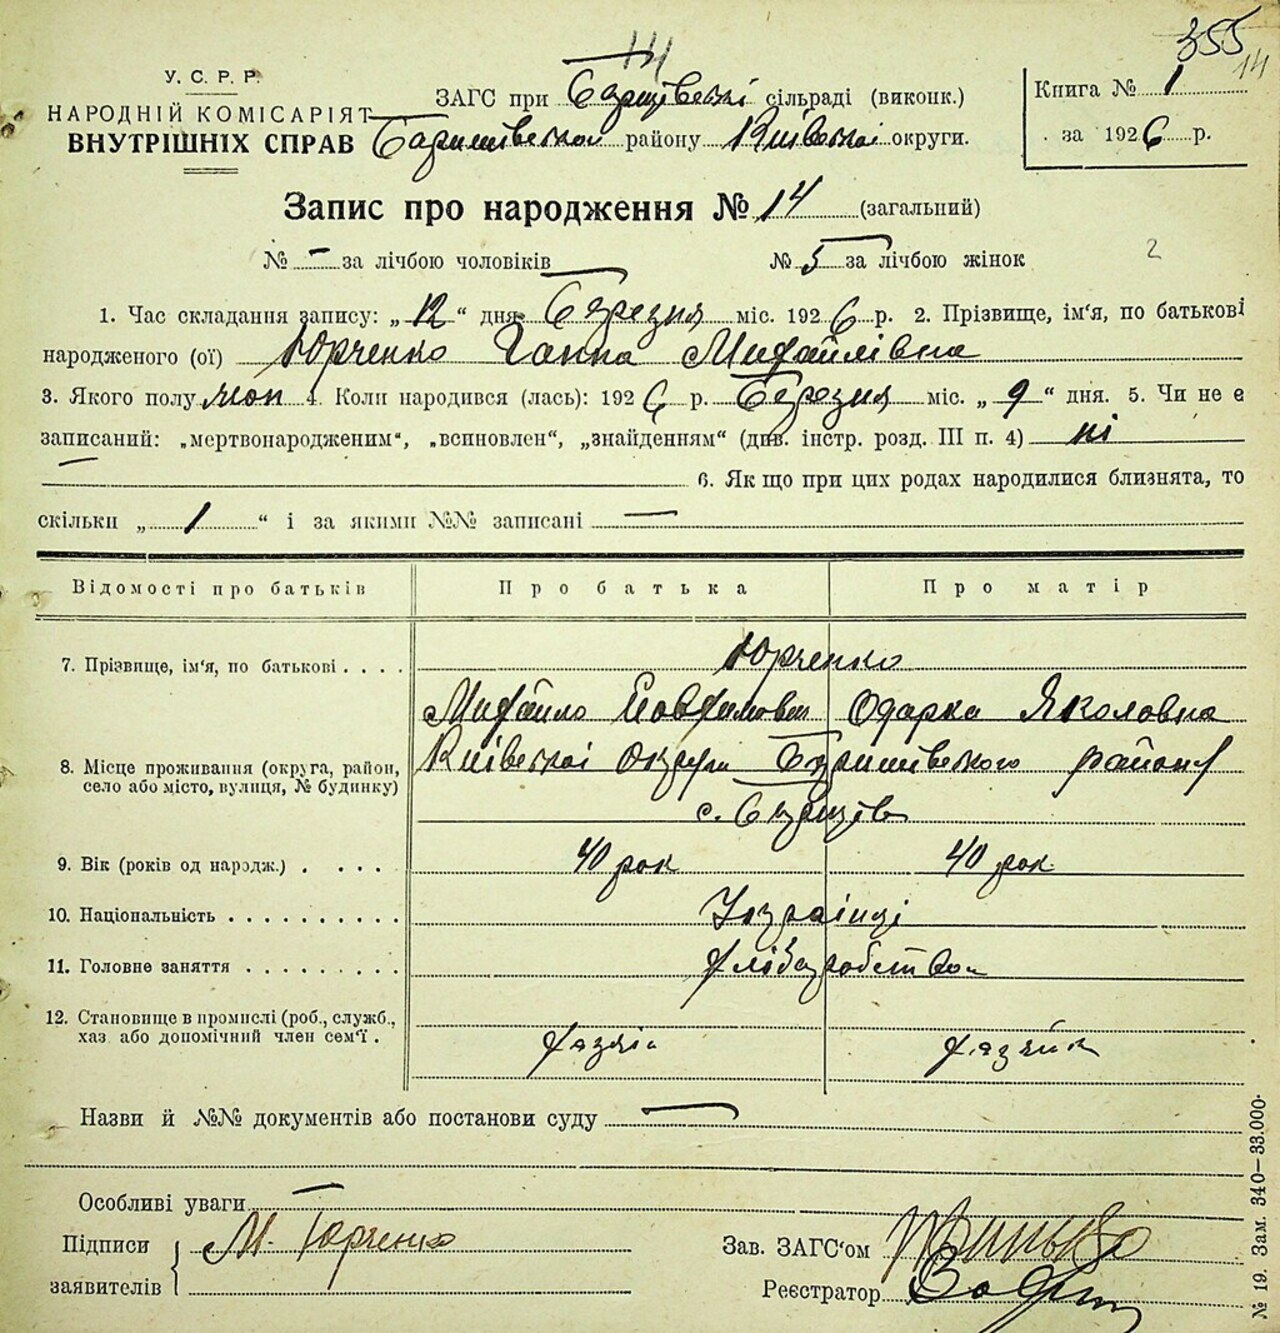 355
14
14
У. С. Р. Р.
НАРОДНІЙ КОМІСАРІЯТ
ВНУТРІШНІХ СПРАВ
ЗАГС при сільраді (виконк.)
району Київської округи.
Книга № 1
за 1926 р.
Запис про народження № 14 (загальний)
№ – за лічбою чоловіків № 5 за лічбою жінок
2
1. Час складання запису: „12“ дня Березня міс. 1926 р. 2. Прізвище, ім'я, по батькові
народженого (ої) Юрченко Ганна Михайлівна
3. Якого полу жон 4. Коли народився (лась): 1926 р. Березня міс. „9“ дня. 5. Чи не є
записаний: „мертвонародженим“, „вспновлен“, „знайденням“ (див. інстр. розд. III п. 4) ні
— 6. Як що при цих родах народилися близнята, то
скільки „1“ і за якими №№ записані —
Відомості про батьків Про батька Про матір
7. Прізвище, ім'я, по батькові . . . . Юрченко
Михайло Одарка Яколовна
8. Місце проживання (округа, район, село або місто, вулиця, № будинку) Київської Округи району
с.
9. Вік (років од народж.) . . . . 40 рок 40 рок
10. Національність . . . . . . . . . . Українці
11. Головне заняття . . . . . . . . .
12. Становище в промислі (роб., служб.,
хаз. або допомічний член сем'ї .
Назви й №№ документів або постанови суду —
Особливі уваги —
Підписи заявителів М. Юрченко
Зав. ЗАГС'ом
Реєстратор
№ 19. Зам. 340—33.000.